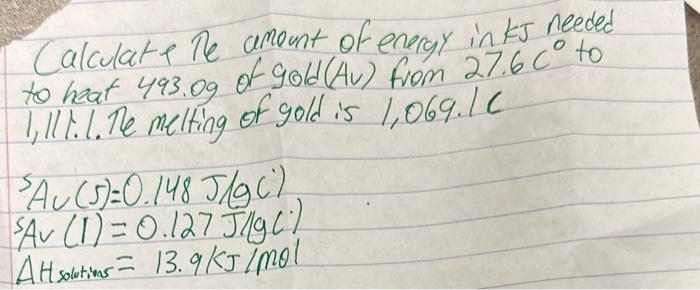 Calculate The amount of energy in kJ needed
to heat 493.0g of gold (Au) from 27.6 C° to
1,111.1. The melting of gold is 1,069.1 C
SAu (S)=0.148 J/(gC°)
SAu (l)=0.127 J/(gC°)
ΔH solutions = 13.9 kJ/mol